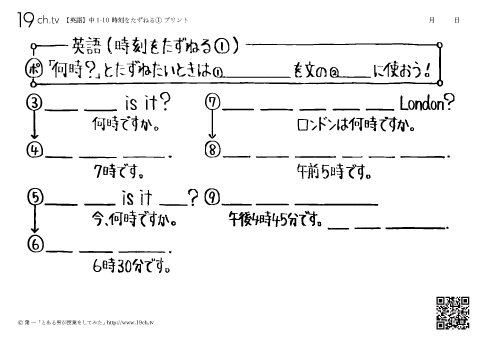 19 ch.tv 【英語】中1-10 時刻をたずねる① プリント 月 日
英語(時刻をたずねる①)
ポ 「何時?」とたずねたいときは① ______ を文の② ______ に使おう!
③ ___ ___ is it?
何時ですか。
④ ___ ___ ___ ___.
7時です。
⑤ ___ ___ is it ___?
今、何時ですか。
⑥ ___ ___ ___ ___.
6時30分です。
⑦ ___ ___ ___ ___ ___ London?
ロンドンは何時ですか。
⑧ ___ ___ ___ ___ ___.
午前5時です。
⑨ ___ ___ ______
午後4時45分です。 ___ ___ ___.
© 葉一「とある男が授業をしてみた」http://www.19ch.tv